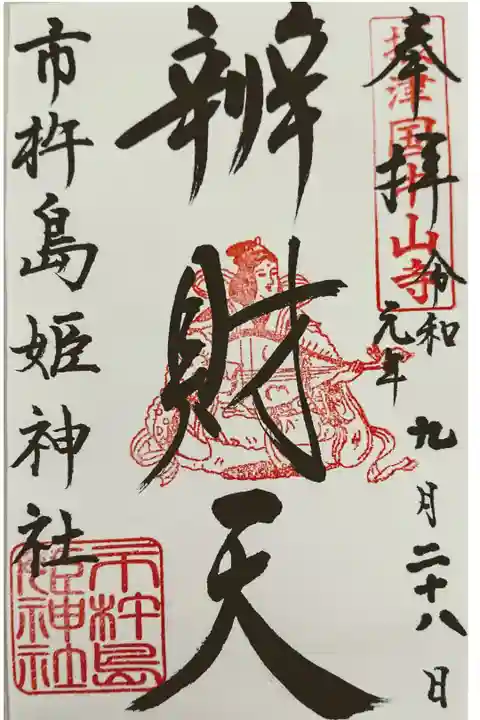 奉拝
摂津国中山寺
令和
元年
九月二十八日
辨財天
市杵島姫神社
市杵島
姫神社